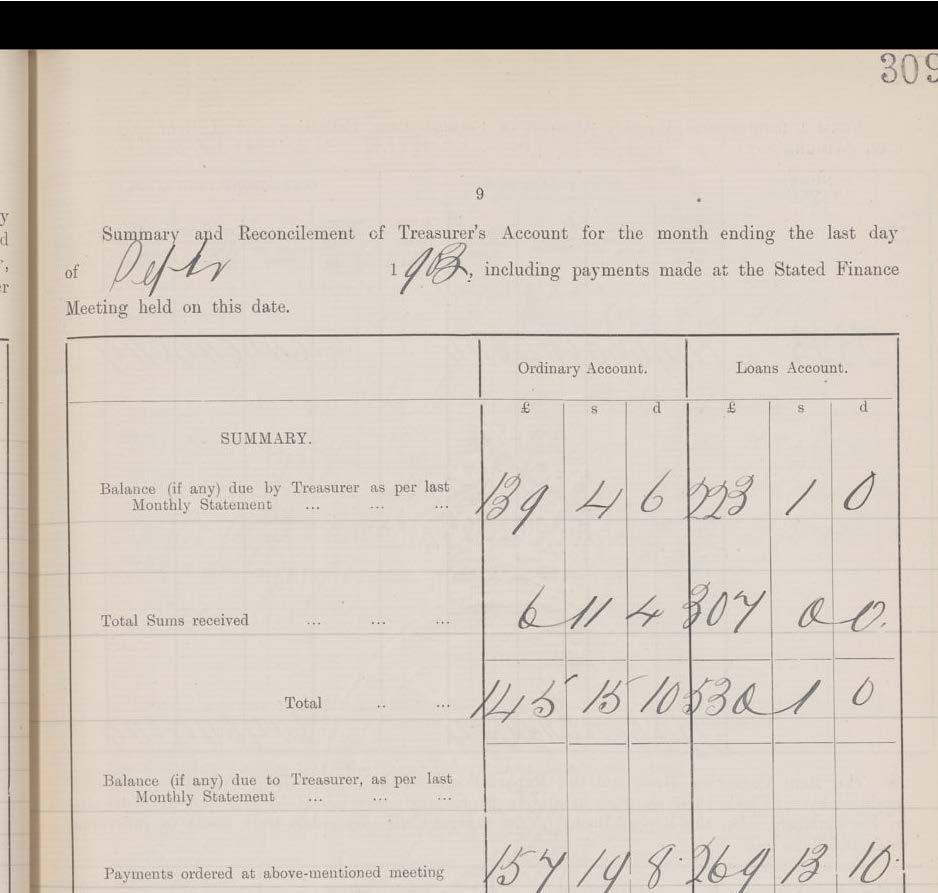 309
9
Summary and Reconcilement of Treasurer's Account for the month ending the last day
of Septr 1903, including payments made at the Stated Finance
Meeting held on this date.
Ordinary Account. Loans Account.
£ s d £ s d
SUMMARY.
Balance (if any) due by Treasurer as per last
Monthly Statement ... ... ... 139 4 6 223 1 0
Total Sums received ... ... ... 6 11 4 307 0 0.
Total .. ... 145 15 10 530 1 0
Balance (if any) due to Treasurer, as per last
Monthly Statement ... ... ...
Payments ordered at above-mentioned meeting 157 19 8 269 13 10